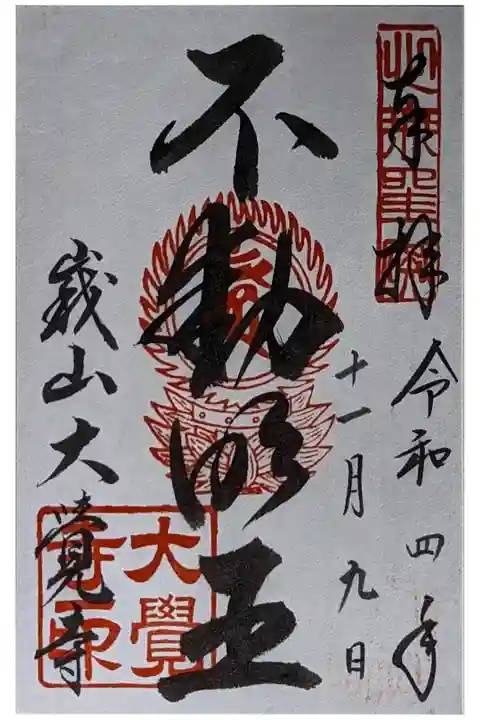 奉拝
令和四年
十一月九日
不動明王
嵯山大覺寺
大覺
寺印